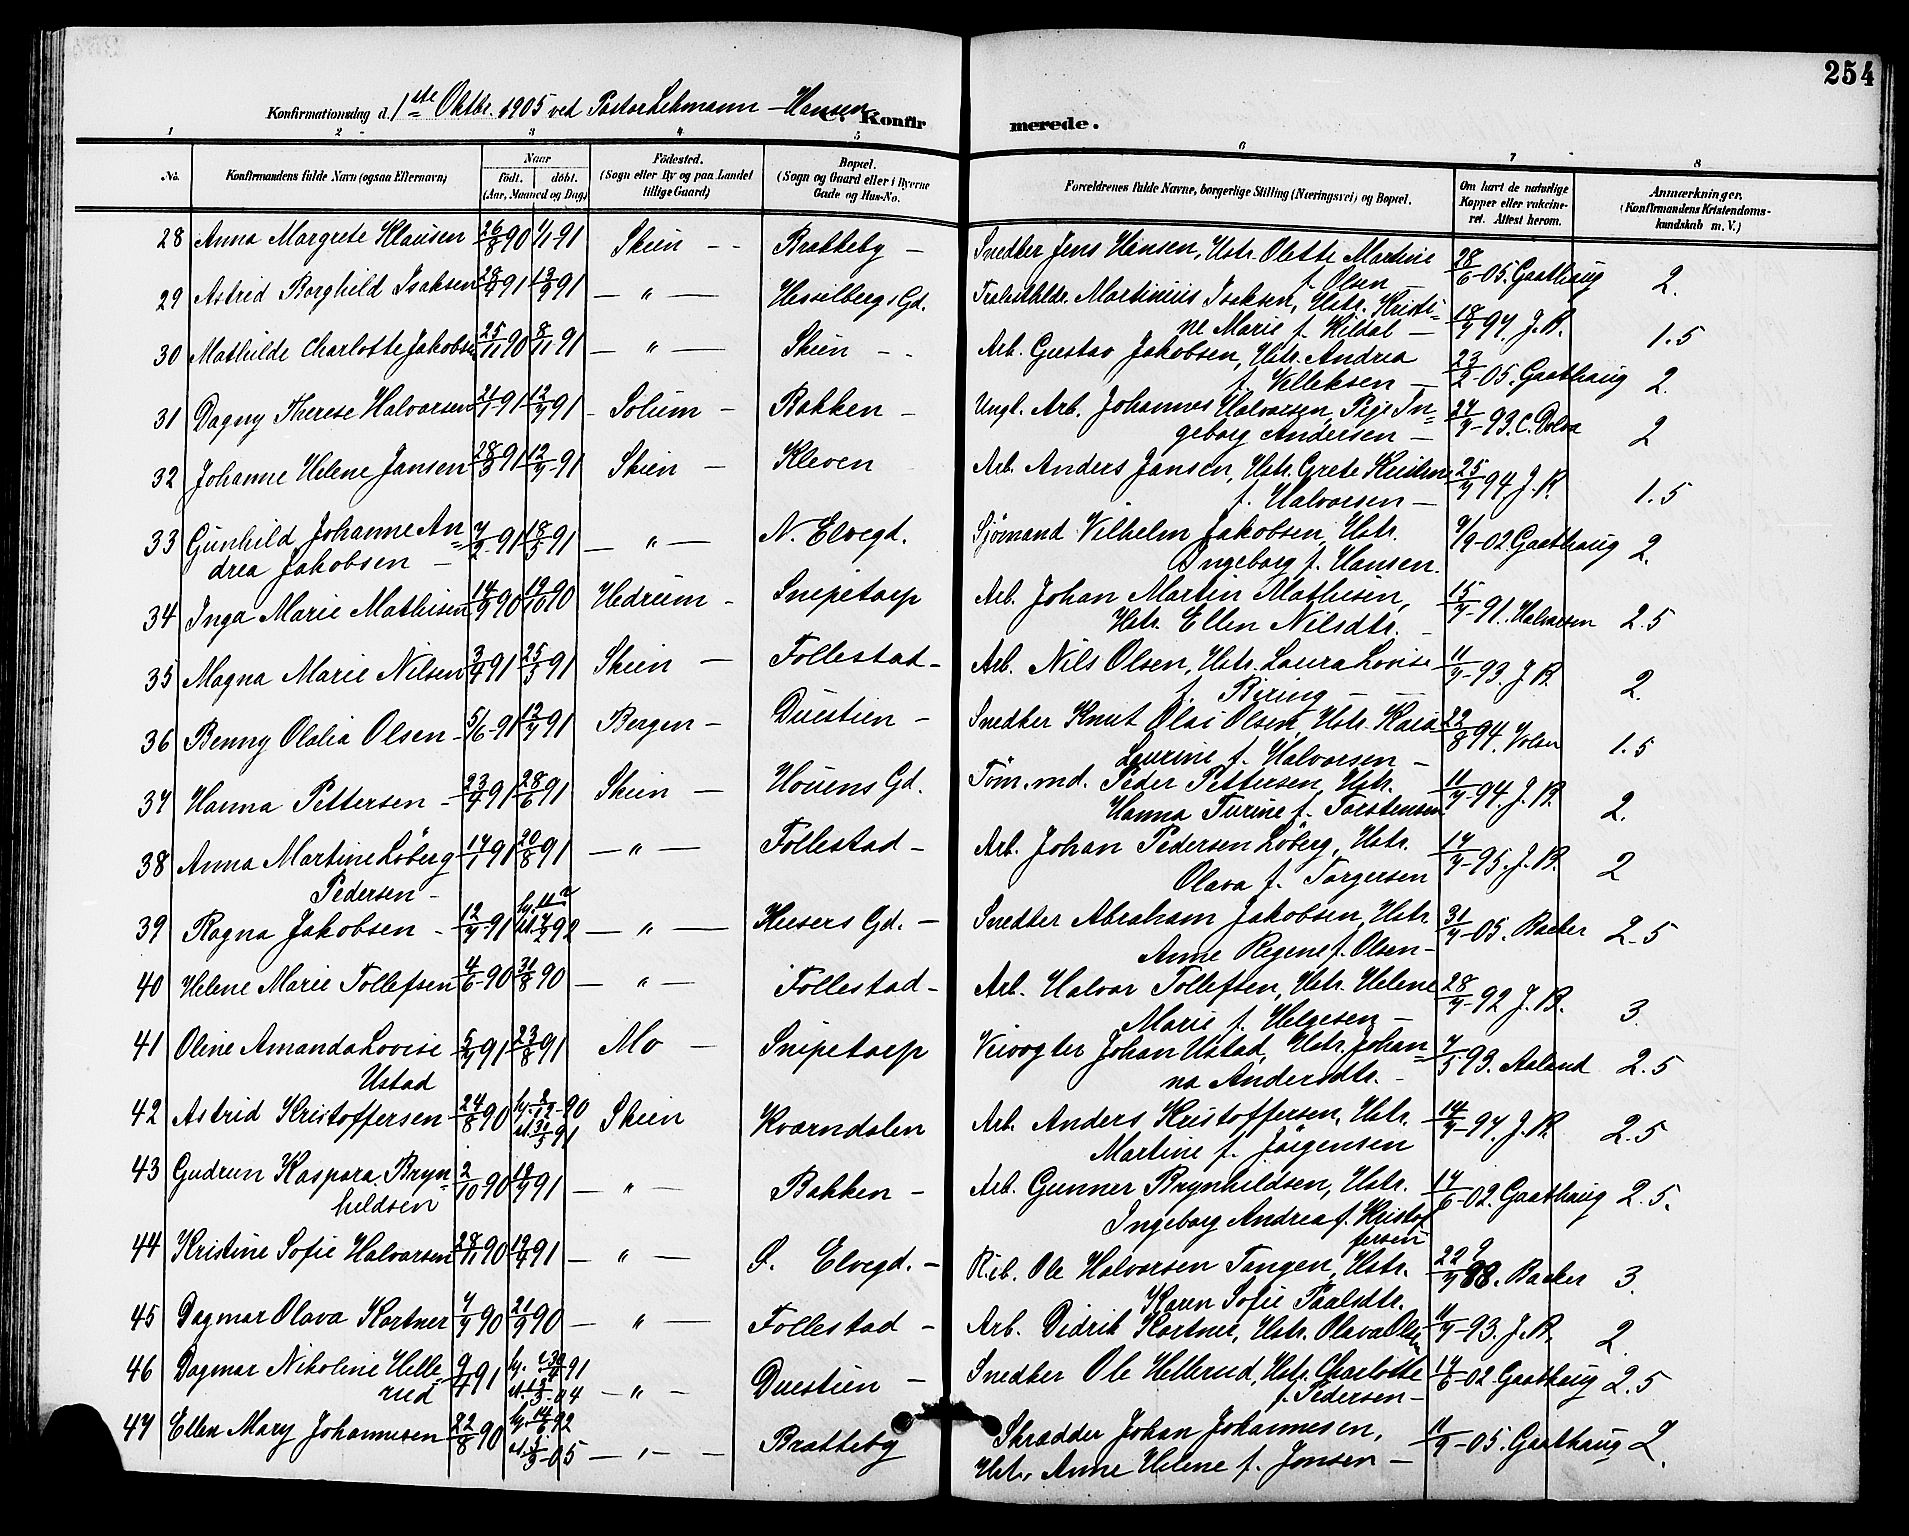 254
Konfirmationsdag d. 1ste Oktbr. 1905 ved Pastor Lehmann-Hansen
C. Konfirmerede.
1 2 3 4 5 6 7 8
No. Konfirmandens fulde Navn (ogsaa Efternavn) Naar født. døbt. (Aar, Maaned og Dag) Fødested. (Sogn eller By og paa Landet tillige Gaard) Bopæl. (Sogn og Gaard eller i Byerne Gade og Hus-No. Forældrenes fulde Navne, borgerlige Stilling (Næringsvei) og Bopæl. Om havt de naturlige Kopper eller vakcineret. Attest herom. Anmærkninger. (Konfirmandens Kristendomskundskab m. V.)
28 Anna Margrete Klausen 26/8 90 1/1 91 Skien - - Bratteby - Snedker Jens Hansen, Hstr. Olette Martine f. Olsen - 28/6-05. Gaathaug 2.
29 Astrid Borghild Isaksen 91 91 - " - Hesselbergs Gd. Martinius Isaksen, Hstr. Kristine Marie f. Kildal - 18/9 97. J.R. 1.5
30 Mathilde Charlotte Jakobsen 25/11 90 8/11 91 - " - Skien - - Arb. Gustav Jakobsen, Hstr. Andrea f. Velleksen - 23/2-05. Gaathaug 2.
31 Dagny Therese Halvorsen 91 12/7 91 - Solum - Bakken - Ungk. Arb. Johannes Halvorsen, Pige Ingeborg Andersen - 93. C. Dolva 2
32 Johanne Helene Jansen 28/3 91 12/7-91 Skien - Kleven Arb. Anders Jansen, Hstr. Grete Kristine f. Halvorsen - 25/9 94 J.R. 1.5
33 Gunhild Johanne Andrea Jakobsen - 7/2-91 18/5 91 - " - N. Elvegd. Sjømand Vilhelm Jakobsen, Hstr. Ingeborg f. Hansen. 9/9-02 Gaathaug 2.
34 Inga Marie Mathisen 14/9 90 12/10 90 Hedrum - Snipetorp Arb. Johan Martin Mathisen, Hstr. Ellen Nilsdtr. - 91. Halvorsen 2.5
35 Magna Marie Nilsen 3/4 91 25/5 91 Skien - Follestad - Arb. Nils Olsen, Hstr. Laura Lovise f. Biring - 93. J.R. 2.
36 Benny Olalia Olsen - 5/6-91 12/7 91 Bergen - Duestien - Snedker Knut Olai Olsen, Hstr. Kaia Laurine f. Halvorsen - 22/8 94. 1.5
37 Hanna Pettersen - 23/4 91 28/6 91 Skien - Houens Gd. Tøm.md. Peder Pettersen, Hstr. Hanna Turine f. Torstensen 94. J.R. 2.
38 Anna Martine Løberg Pedersen - 17/1 91 20/8 91 - " - Follestad - Arb. Johan Pedersen Løberg, Hstr. Olava f. Torgersen 95. J.R. 2
39 Ragna Jakobsen - 12/9-91 92 - " - Keisers Gd. - Snedker Abraham Jakobsen, Hstr Anne Regine f. Olsen - 31/7-05. Backer 2.5
40 Helene Marie Tollefsen 4/6-90 31/8 90 - " - Follestad - Arb. Halvor Tollefsen, Hstr. Helene Marie f. Helgesen - 92 J.R. 3.
41 Oline Amanda Lovise Ustad 91 23/8 91 Mo - Snipetorp Johan Ustad, Hstr. Johanna Andersdtr. - 7/5 93. Aaland 2.5
42 Astrid Kristoffersen - 24/8 90 90 91 Skien Kværndalen Arb. Anders Kristoffersen, Hstr. Martine f. Jørgensen 97. J.R. 2.5
43 Gudrun Kaspara Brynhildsen 2/10 90 91 - " - Bakken - Arb. Gunner Brynhildsen, Hstr. Ingeborg Andrea f. Kristoffersen 17/6-02. Gaathaug 2.5.
44 Kristine Sofie Halvorsen 28/11 90 91 - " - Ø. Elvegd. - Rib. Ole Halvorsen Tangen, Hstr. Karen Sofie Paalsdtr. 88. Backer 3.
45 Dagmar Olava Kortner 90 21/9 90 - " - Follestad - Arb. Didrik Kortner, Hstr. Olava Olsen 93. J.R. 2.
46 Dagmar Nikoline Hellerud 91 91 04 - " - Duestien - Snedker Ole Hellerud, Hstr. Charlotte f. Pedersen - 17/6-02 Gaathaug 2.5
47 Ellen Mary Johannesen 22/8 90 92 05 - " - Bratteby Skrædder Johan Johannesen, Hstr. Anne Helene f. Jonsen - 11/9-05. Gaathaug 2.